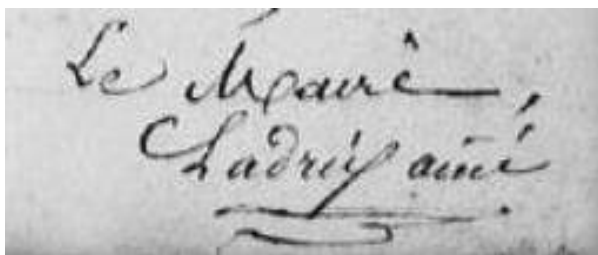 Le Maire,
Ladrix ainé